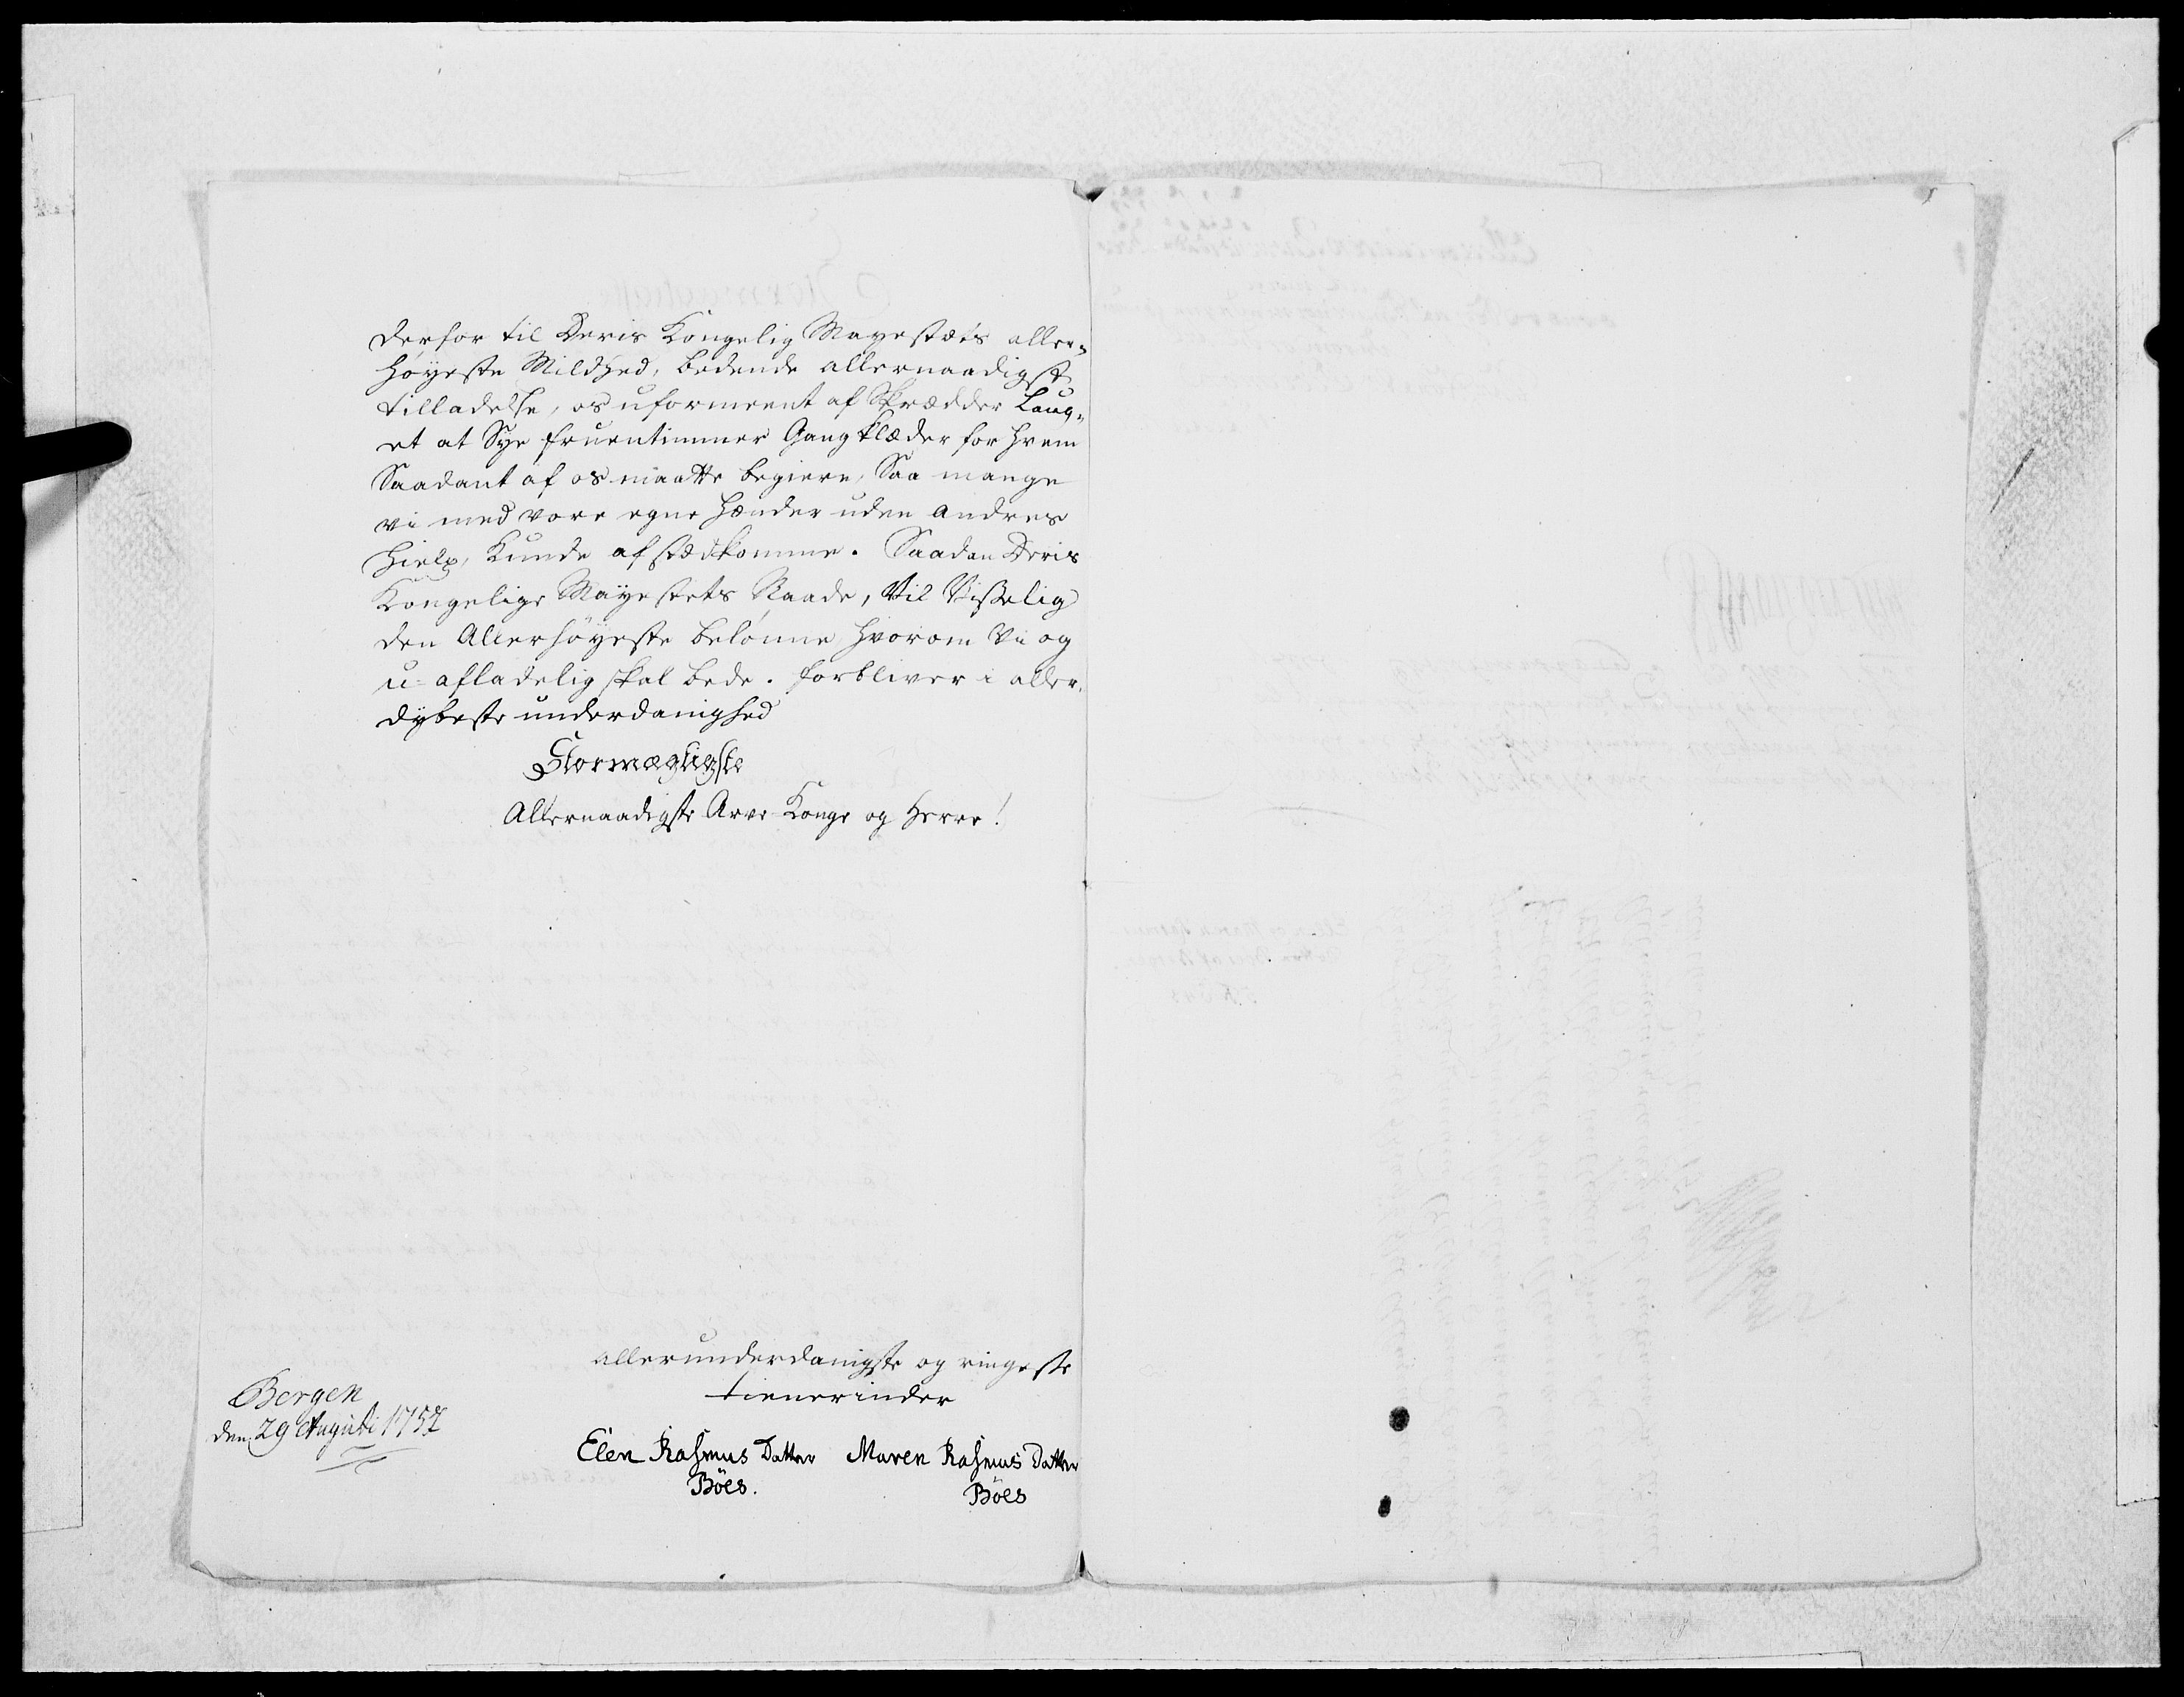 derfor til Deris Kongelig Mayestæts aller-
høyeste Mildhed, bedende allernaadigst
tilladelse, os uformeent af Skrædder Laug-
et at Sye fruentimmer Gangklæder for hvem
Saadant af os maatte begiere, Saa mange
vi med vore egne hænder uden Andres
hielp, Kunde afstædkomme. Saadan Deris
Kongelige Mayestets Naade, Vil Visselig
den Allerhøyeste belønne hvorom Vi og
u-afladelig skal bede. forbliver i aller-
dybeste underdanighed
Stormægtigste
Allernaadigste Arve Konge og Herre!
allerunderdanigste og ringeste
tienerinder
Bergen
den 29 Augusti 1757
Elen Rasmus Datter Maren Rasmus Datter
Böes. Böes